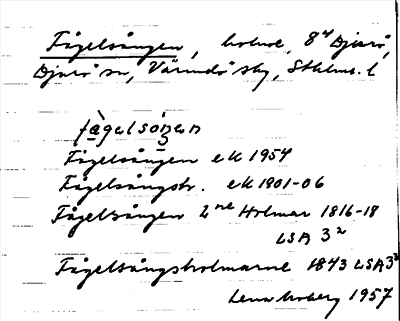 Fågelsången, holme, 8d Djurö,
Djurö sn, Värmdö skg, Sthlms. l
fàgelsóŋen
Fågelsången ek 1954
Fågelsångsh. ek 1901-06
Fågelsången 2ne Holmar 1816-18
LSA 32
Fågelsångsholmarne 1843 LSA 32
Lena Moberg 1957